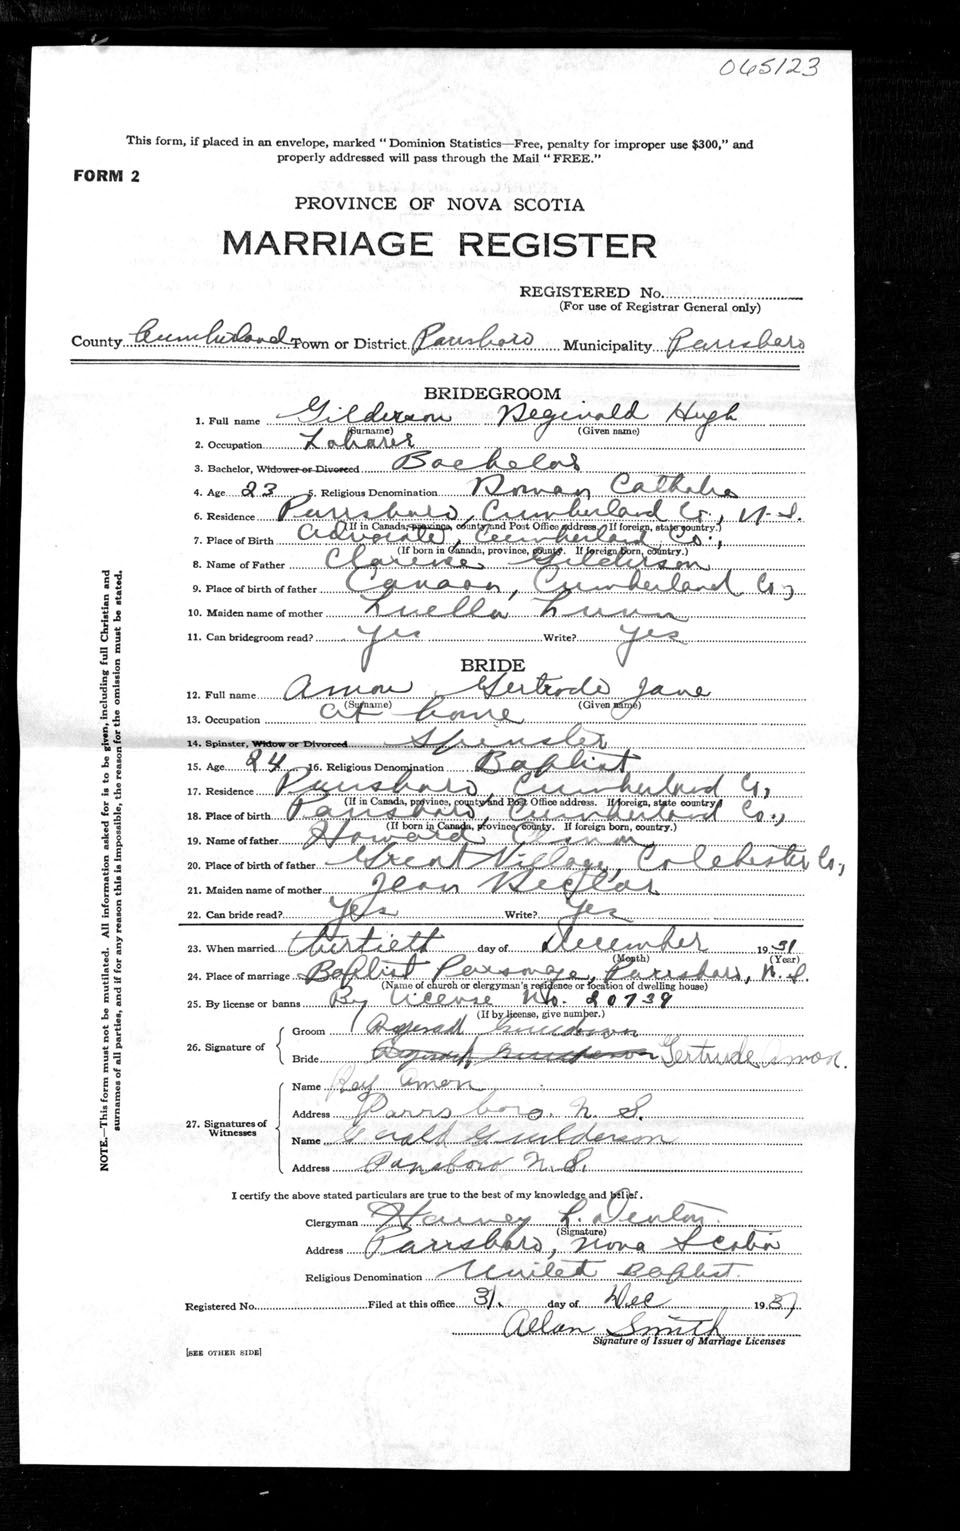 065123
This form, if placed in an envelope, marked "Dominion Statistics—Free, penalty for improper use $300," and
properly addressed will pass through the Mail "FREE."
FORM 2
PROVINCE OF NOVA SCOTIA
MARRIAGE REGISTER
REGISTERED No.
(For use of Registrar General only)
County Cumberland Town or District Parrsboro Municipality Parrsboro
BRIDEGROOM
1. Full name Gilderson Reginald Hugh
(Surname) (Given name)
2. Occupation Laborer
3. Bachelor, Widower or Divorced Bachelor
4. Age 23 5. Religious Denomination Roman Catholic
6. Residence Parrsboro, Cumberland Co., N.S.
(If in Canada, province, county and Post Office address. If foreign, state country.)
7. Place of Birth Advocate, Cumberland Co.,
(If born in Canada, province, county. If foreign born, country.)
8. Name of Father Clarence Gilderson
9. Place of birth of father Canaan, Cumberland Co.,
10. Maiden name of mother Luella
11. Can bridegroom read? Yes Write? Yes
BRIDE
12. Full name Amon Gertrude Jane
(Surname) (Given name)
13. Occupation at home
14. Spinster, Widow or Divorced Spinster
15. Age 24 16. Religious Denomination Baptist
17. Residence Parrsboro, Cumberland Co,
(If in Canada, province, county and Post Office address. If foreign, state country)
18. Place of birth Parrsboro, Cumberland Co.,
(If born in Canada, province, county. If foreign born, country.)
19. Name of father Howard Amon
20. Place of birth of father Great Village, Colchester Co,
21. Maiden name of mother Jean
22. Can bride read? Yes Write? Yes
23. When married thirtieth day of December 1931
(Month) (Year)
24. Place of marriage Baptist Parsonage, Parrsboro, N.S.
(Name of church or clergyman's residence or location of dwelling house)
25. By license or banns By License No. 20739
(If by license, give number.)
26. Signature of
Groom
Bride Gertrude Amon.
27. Signatures of Witnesses
Name Roy Amon
Address Parrsboro. N. S.
Name Gerald Guilderson
Address Parrsboro N. S.
I certify the above stated particulars are true to the best of my knowledge and belief.
Clergyman Harvey L. Denton.
(Signature)
Address Parrsboro, Nova Scotia
Religious Denomination United Baptist.
Registered No. Filed at this office 31. day of Dec 1931
Allan Smith
Signature of Issuer of Marriage Licenses
[SEE OTHER SIDE]
NOTE.—This form must not be mutilated. All information asked for is to be given, including full Christian and
surnames of all parties, and if for any reason this is impossible, the reason for the omission must be stated.